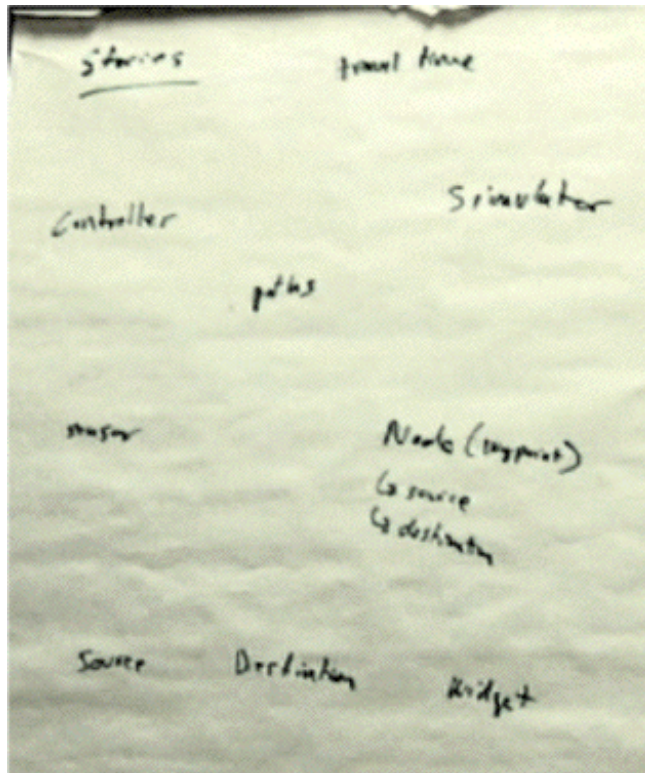 Stories
travel time
Simulator
Controller
paths
sensor
Node (waypoint)
↳ source
↳ destination
Source Destination Widget